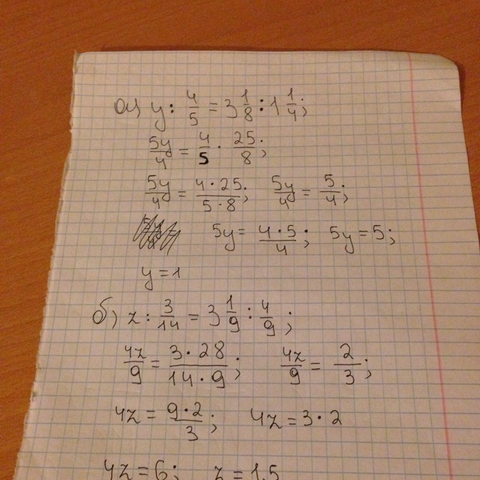 а) y : 4/5 = 3 1/8 : 1 1/4;
5y/4 = 4/5 · 25/8;
5y/4 = 4·25/5·8; 5y/4 = 5/4;
5y = 4·5/4; 5y = 5;
y = 1
б) z : 3/14 = 3 1/9 : 4/9;
4z/9 = 3·28/14·9; 4z/9 = 2/3;
4z = 9·2/3; 4z = 3·2
4z = 6; z = 1,5